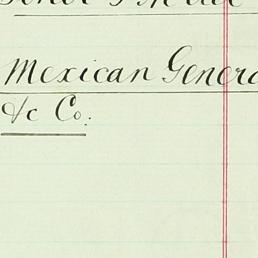 Mexican General
&c Co.